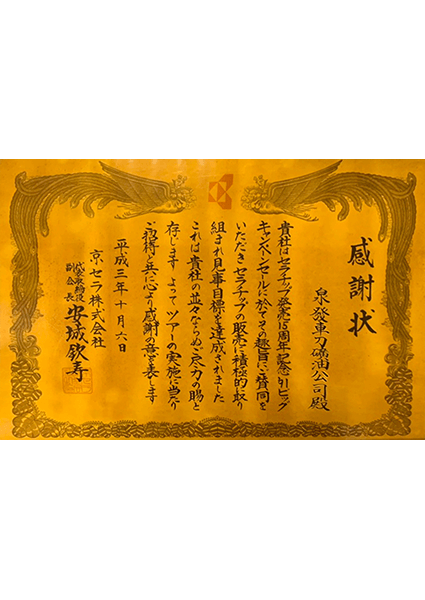 感謝状
泉發車刀礦油公司殿
貴社はセラチップ発売15周年記念'91ビッグ
キャンペーンセールに於てその趣旨にご賛同を
いただきセラチップの販売に積極的に取り
組まれ見事目標を達成されました
これは貴社の並々ならぬご尽力の賜と
存じます よって ツアーの実施に当り
ご招待と共に心より感謝の意を表します
平成三年十月六日
京セラ株式会社
代表取締役
副会長 安城欽寿